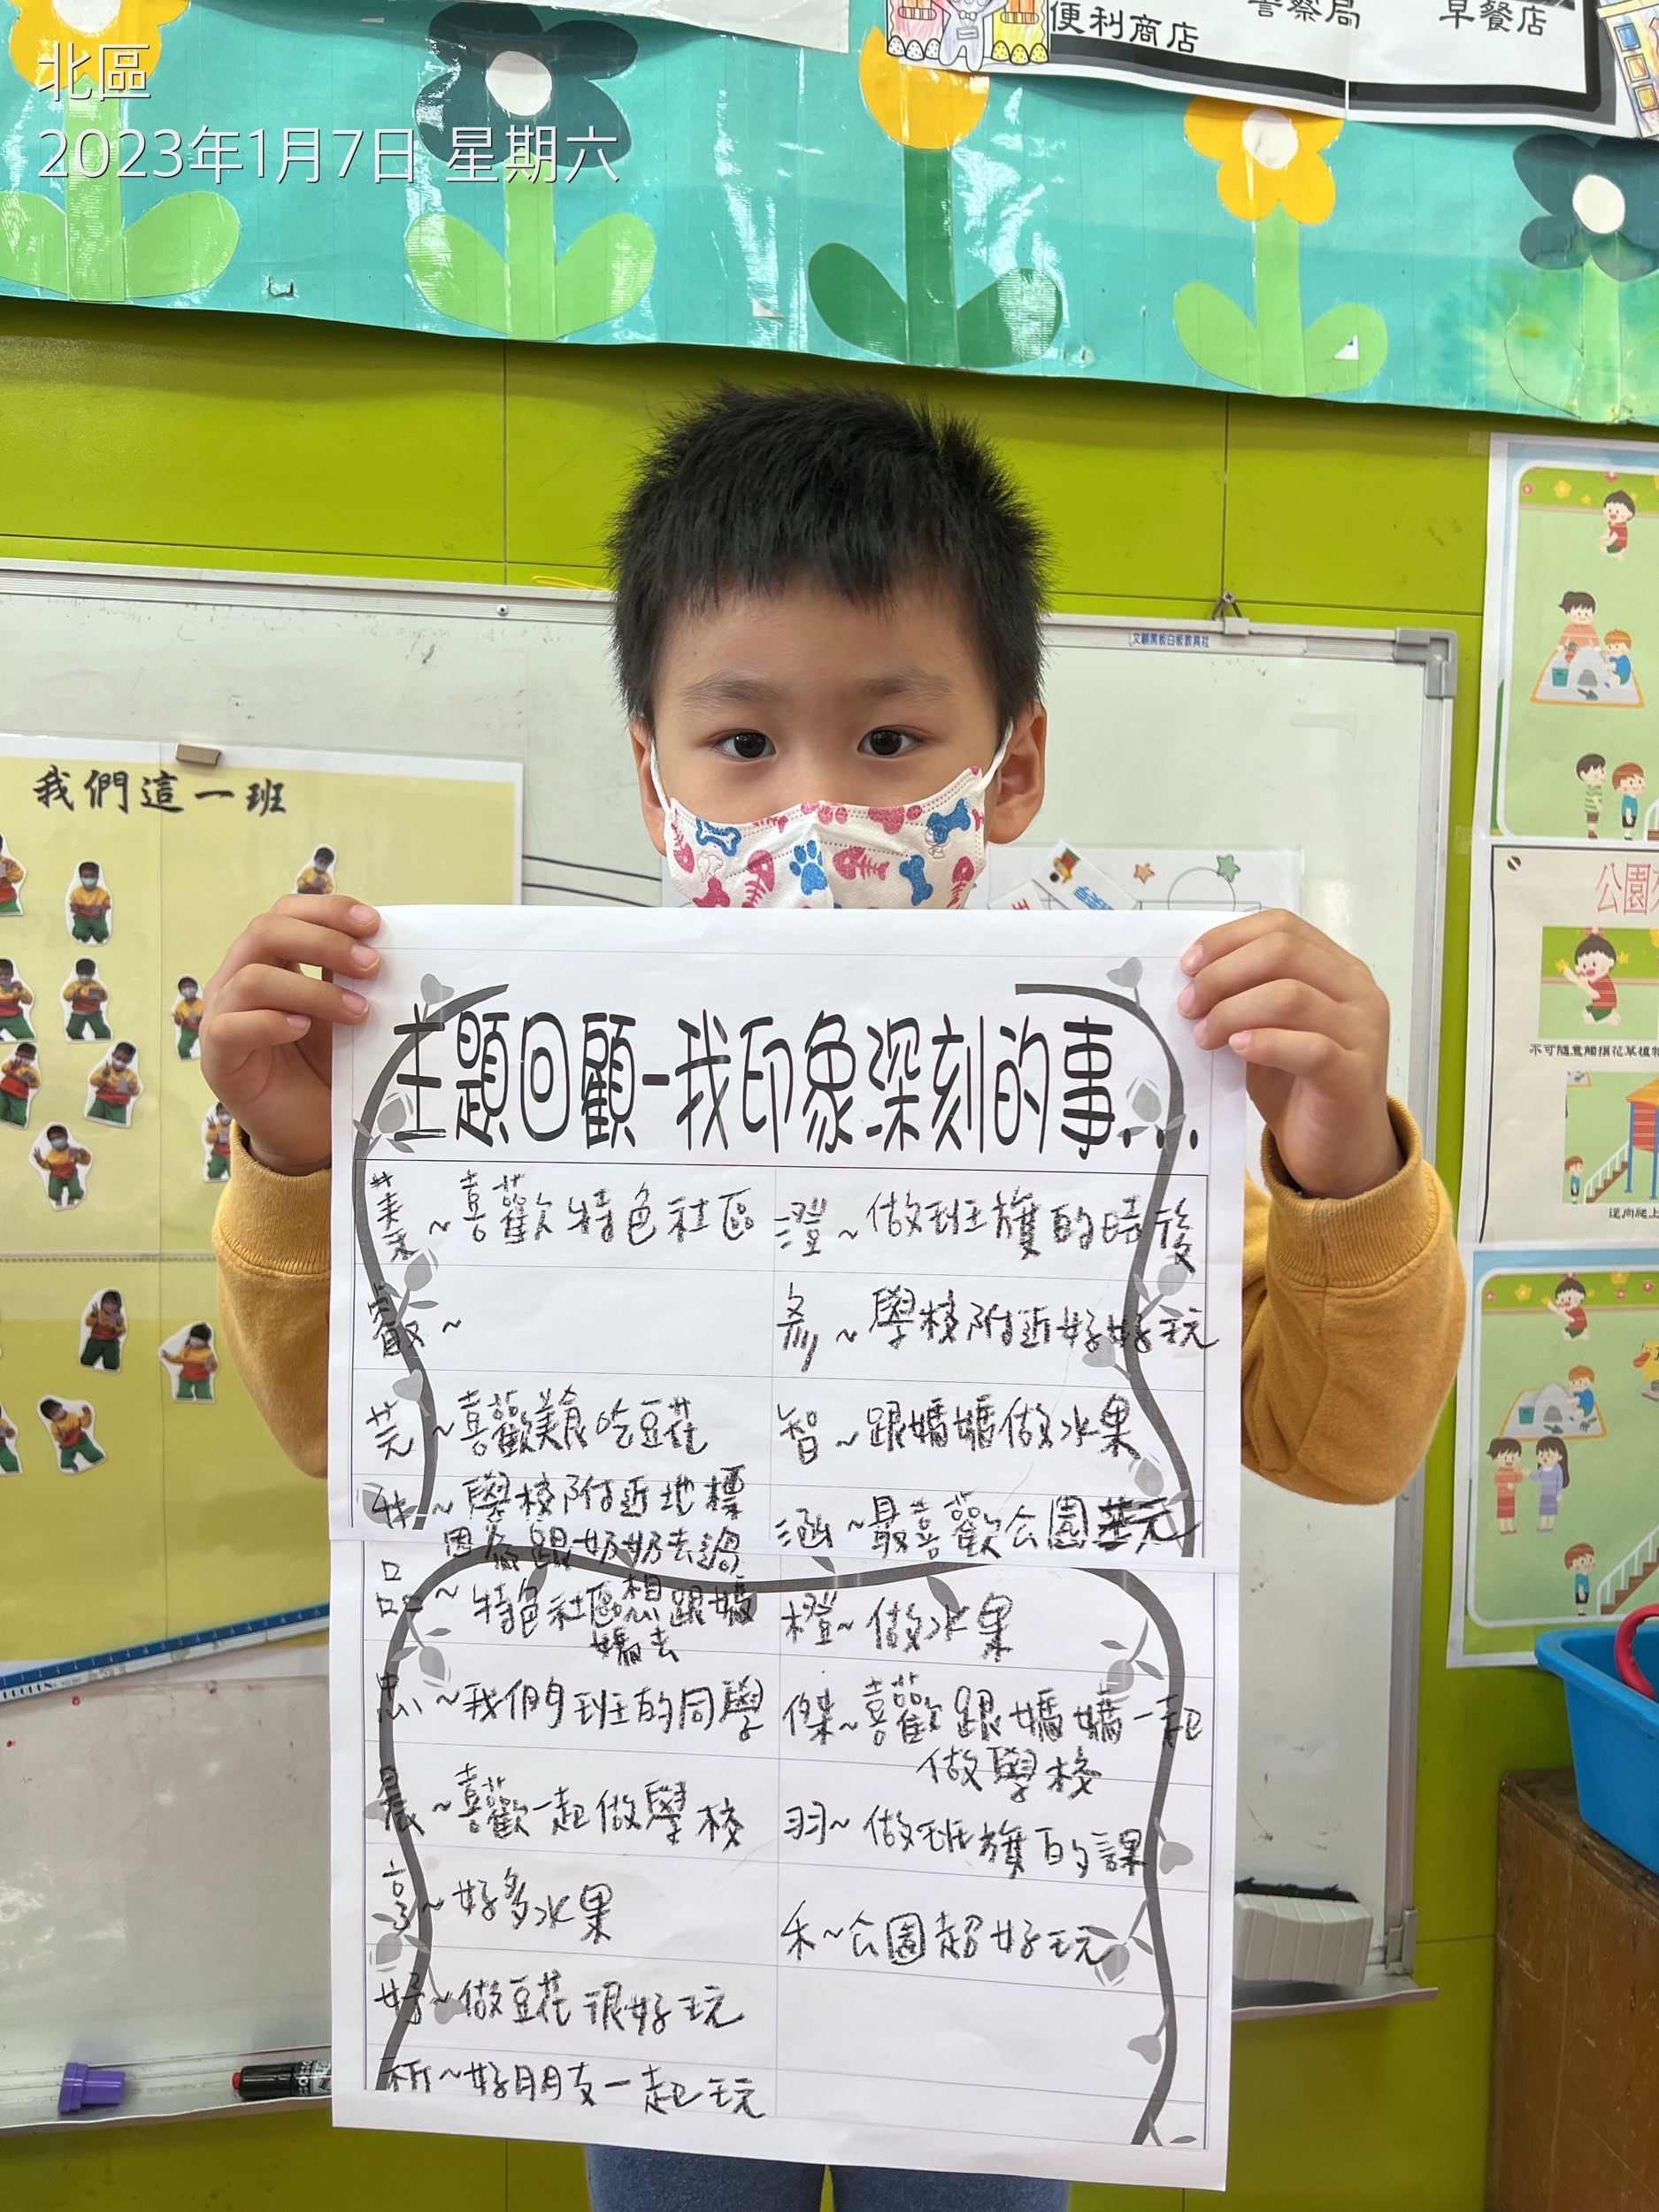 北區
2023年1月7日 星期六
便利商店
警察局
早餐店
文顧黑板白板教具社
我們這一班
公園
不可隨意觸摸花草植物
逆向爬上
主題回顧-我印象深刻的事...
~喜歡特色社區
澄~做班旗的時後
叡~
彣~學校附近好好玩
芫~喜歡美食吃豆花
智~跟媽媽做水果
~學校附近地標
因為跟奶奶去過
涵~最喜歡公園單元
品~特色社區想跟媽
媽去
橙~做水果
忠~我們班的同學
傑~喜歡跟媽媽一起
做學校
晨~喜歡一起做學校
羽~做班旗的課
享~好多水果
禾~公園超好玩
~做豆花很好玩
祈~好朋友一起玩